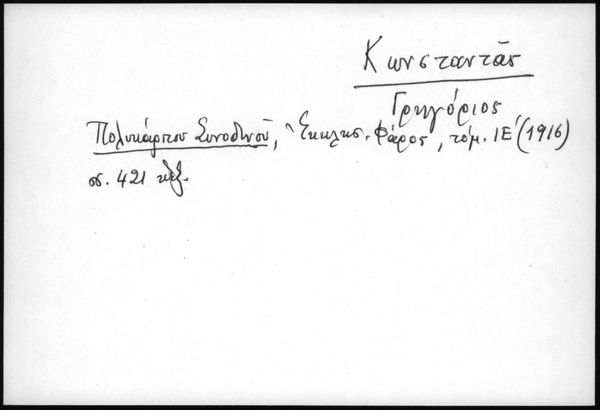 Κωνσταντᾶς
Γρηγόριος
Πολυκάρπου Συνοδινοῦ, Ἐκκλησ. Φάρος, τόμ. ΙΕ΄ (1916)
σ. 421 κἑξ.